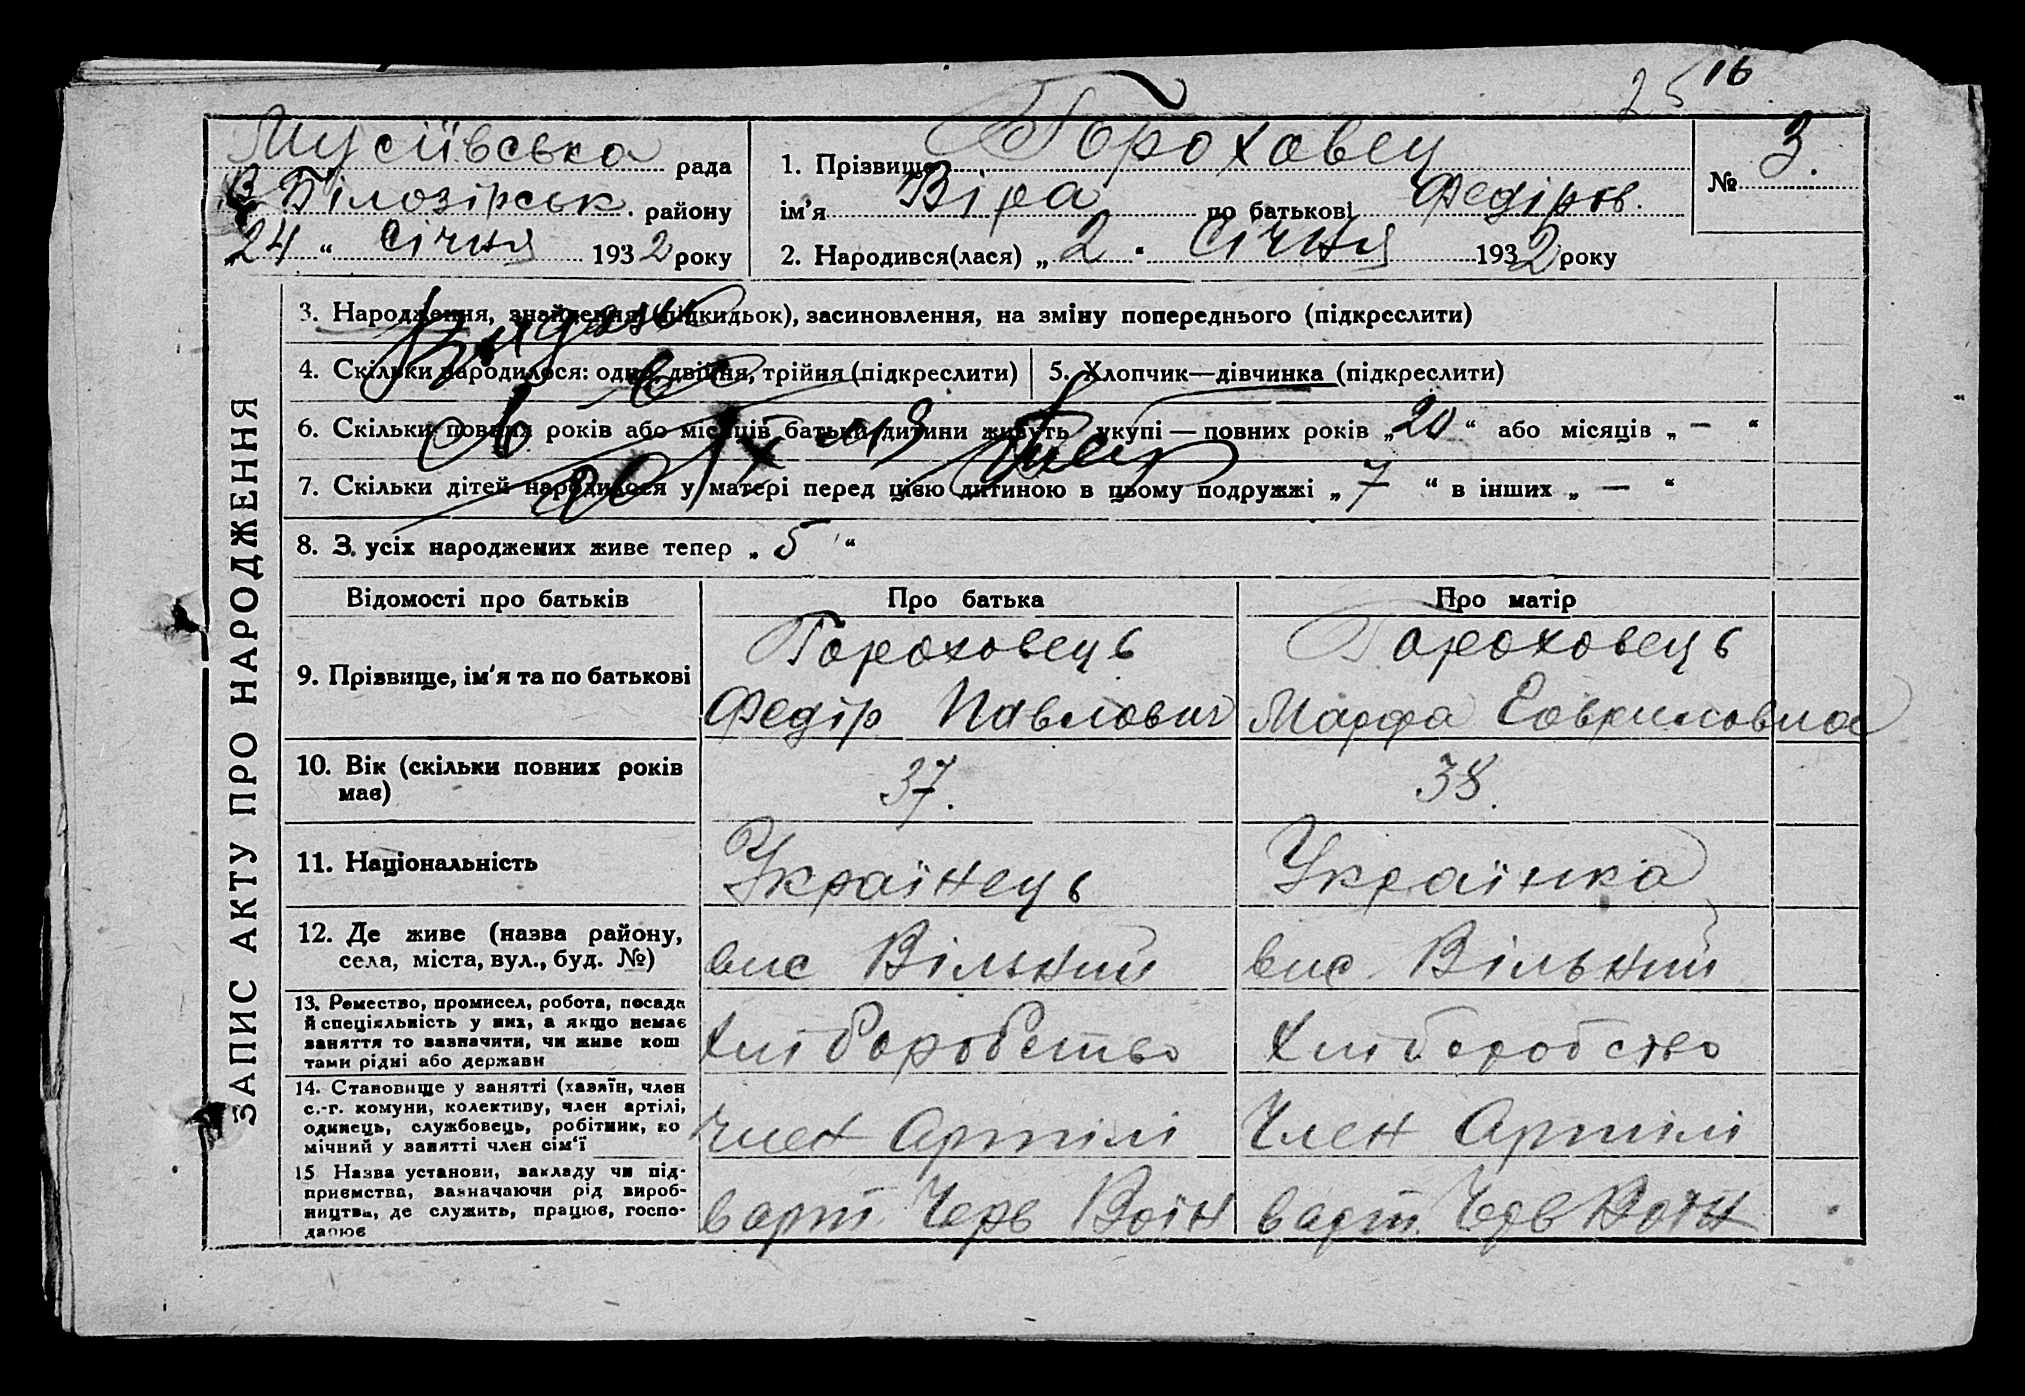 25 16
Мусіївська рада
В. Білозірськ. району
„24 “ Січня 1932 року
1. Прізвище Гороховец
ім’я Віра по батькові Федіров.
2. Народився(лася) „ 2 “ Січня 1932 року
№ 3.
ЗАПИС АКТУ ПРО НАРОДЖЕННЯ
3. Народження, знайдення (підкидьок), засиновлення, на зміну попереднього (підкреслити)
4. Скільки народилося: одно, двійня, трійня (підкреслити)
5. Хлопчик—дівчинка (підкреслити)
6. Скільки повних років або місяців батьки дитини живуть укупі — повних років „20 “ або місяців „ — “
7. Скільки дітей народилося у матері перед цією дитиною в цьому подружжі „ 7 “ в інших „ — “
8. З усіх народжених живе тепер „ 5 “
Відомості про батьків
Про батька
Про матір
9. Прізвище, ім’я та по батькові
Гороховець
Федір Павлович
Гороховець
Марфа Гавриловна
10. Вік (скільки повних років
має)
37.
38.
11. Національність
Українець
Українка
12. Де живе (назва району,
села, міста, вул., буд. №)
вис Вільний
вис. Вільний
13. Ремество, промисел, робота, посада
й спеціяльність у них, а якщо немає
заняття то зазначити, чи живе кош
тами рідні або держави
Хліборобство
Хліборобство
14. Становище у занятті (хазяїн, член
с.-г. комуни, колективу, член артілі,
одинець, службовець, робітник, по
мічний у занятті член сім’ї
Член Артілі
Член Артілі
15 Назва установи, закладу чи під-
приємства, зазначаючи рід вироб-
ництва, де служить, працює, госпо-
дарює
варт. Черв Воїн
варт. Черв Воїн